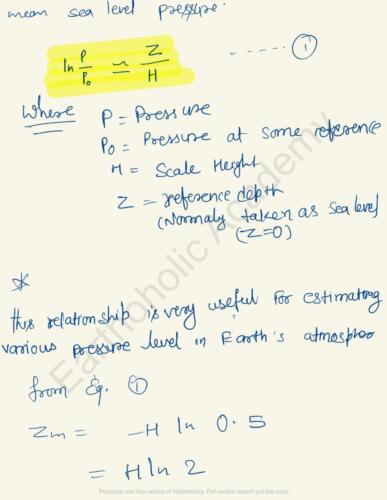 mean sea level pressure.
ln P/P₀ ≃ Z/H ----- ①
Where P = Pressure
P₀ = Pressure at some reference
H = Scale Height
Z = reference depth
(Normaly taken as sea level
(Z=0)
*
this relationship is very useful for estimating
various pressure level in Earth's atmosphere
from Eq. ①
Zm = -H ln 0.5
= H ln 2
Earthoholic Academy
Produced with free version of Watermarkly. Full version doesn't put this mark